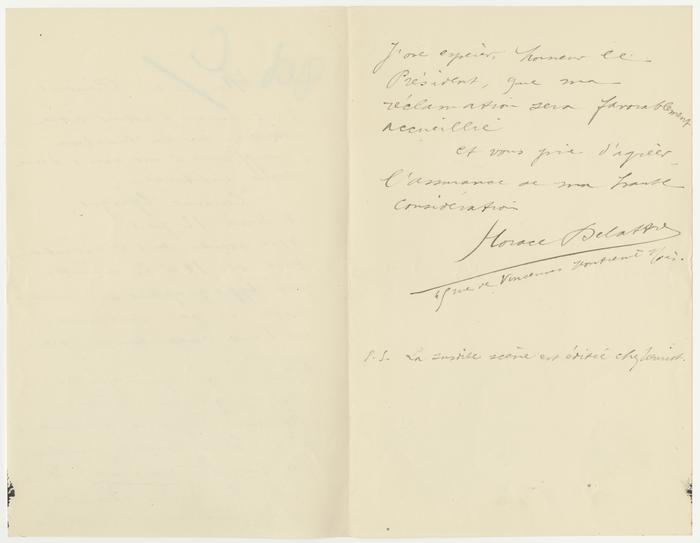 J'ose espérer, Monsieur le
Président, que ma
réclamation sera favorablement
accueillie
et vous prie d'agréer
l'assurance de ma haute
considération
Horace Delattre
rue de Vincennes Montreuil s/Bois.
P.S. La susdite scène est éditée chez